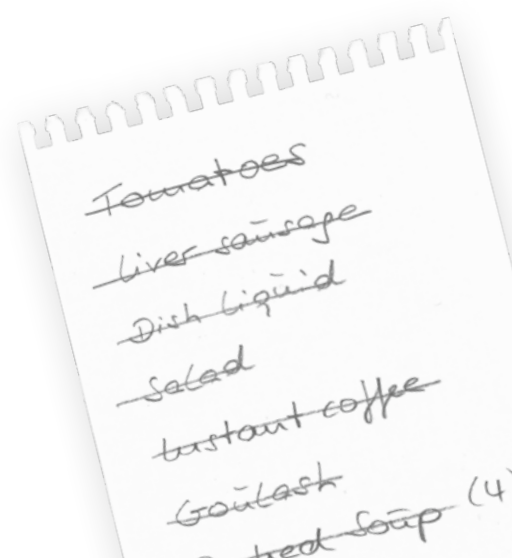 Tomatoes
Liver sausage
Dish liquid
Salad
Instant coffee
Goulash
soup (4)